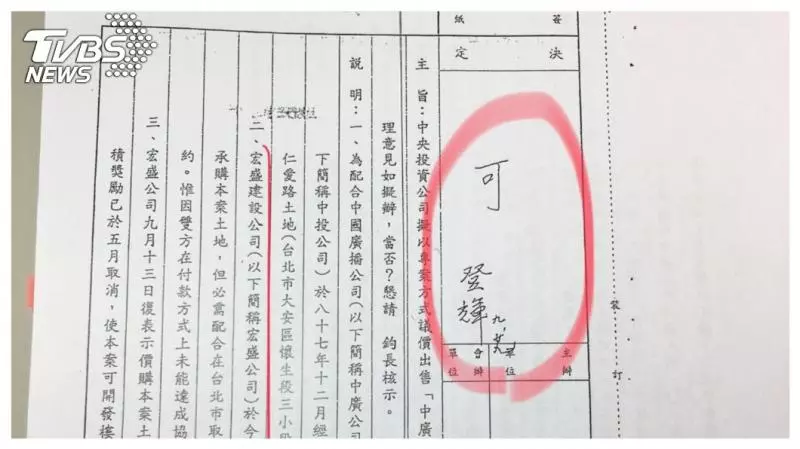 TVBS
NEWS
簽
紙
決
定
可
登輝
九.廿九
主辦
單位
會辦
單位
裝
訂
主 旨：中央投資公司擬以專案方式議價出售「中廣
理意見如擬辦，當否？懇請 鈞長核示。
說 明：一、為配合中國廣播公司（以下簡稱中廣公司
下簡稱中投公司）於八十七年十二月經
仁愛路土地（台北市大安區懷生段三小段
二、宏盛建設公司（以下簡稱宏盛公司）於今
承購本案土地，但必需配合在台北市取
約。惟因雙方在付款方式上未能達成協
三、宏盛公司九月十三日復表示價購本案土
積獎勵已於五月取消，使本案可開發樓